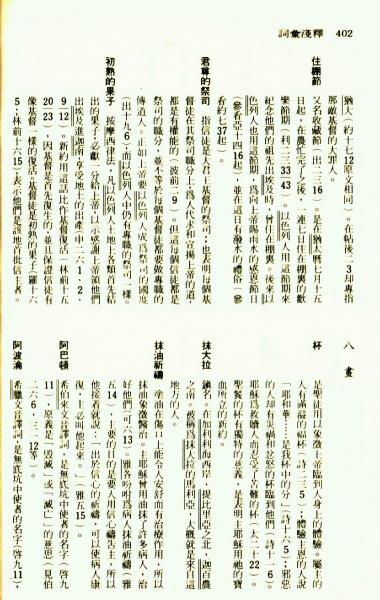 詞彙淺釋 402
猶大(約十七12原文相同)。在帖後二3却專指
那敵基督的大罪人。
住棚節 又名收藏節(出二三16),是在猶太曆七月十五
日起,在農忙完了之後,一連七日住在棚裏的歡
樂節期(利二三33—43)。以色列人用這節期來
紀念他們的祖先出埃及時,曾住在棚裏。後來以
色列人也用這節期,爲向上帝賜雨水的感恩節日
(參看亞十四16起),並在這日有潑水的禮俗(參
看約七37起)。
君尊的祭司 指信徒是大君王基督的祭司;也表明每個基
督徒在其祭司職分上,爲人代求和宣揚上帝的道,
都是有權能的(彼前二9)。但這每個信徒都是
祭司的職分,並不等於每個基督徒都要做專職的
傳道人。正如上帝要以色列人成爲祭司的國度
(出十九6),而以色列人中仍有專職的祭司一樣。
初熟的果子 按摩西律法,凡以色列人土地上各類首先結
出的果子,必獻一分給上帝,以示感謝上帝領他們
出埃及進迦南享受地土的出產(申二六1、2、
9—12)。新約用這話比作基督復活(林前十五
20—23),因基督是首先復生的,並且保證信徒有
像基督一樣的復活;基督徒是初熟的果子(羅十六
5;林前十六15),表示他們是該地首批信主者。
八畫
杯 是聖徒用以象徵上帝臨到人身上的體驗。屬主的
人有滿溢的福杯(詩二三5),體驗主恩的人說:
「耶和華……是我杯中的分」(詩十六5);邪惡
的人却有災禍和忿怒的杯臨到他們(詩十一6)。
耶穌爲救贖人而忍受了苦難的杯(太二十22)。
聖餐的杯有獨特的意義,是表明主耶穌用祂的寶
血所立的新約。
抹大拉 鎮名。在加利利海西岸,提比里亞之北,迦百農
之南。被稱爲抹大拉的馬利亞,大概就是來自這
地方的人。
抹油祈禱 塗油在傷口上能令人安舒而有治療作用,所以
抹油象徵醫治。主耶穌曾用油抹了許多病人,治
好他們(可六13)。雅各吩咐爲病人抹油祈禱(雅
五14),主要的目的是要人用信心禱告主,所以
他接着就說:「出於信心的祈禱,可以使病人康
復,主必叫他起來。」(雅五15)。
阿巴頓 希伯來文音譯詞,是無底坑中使者的名字(啓九
11),原義是「毀滅」或「滅亡」的意思(見伯
二六6,三一12等)。
阿波淪 希臘文音譯詞,是無底坑中使者的名字(啓九11),